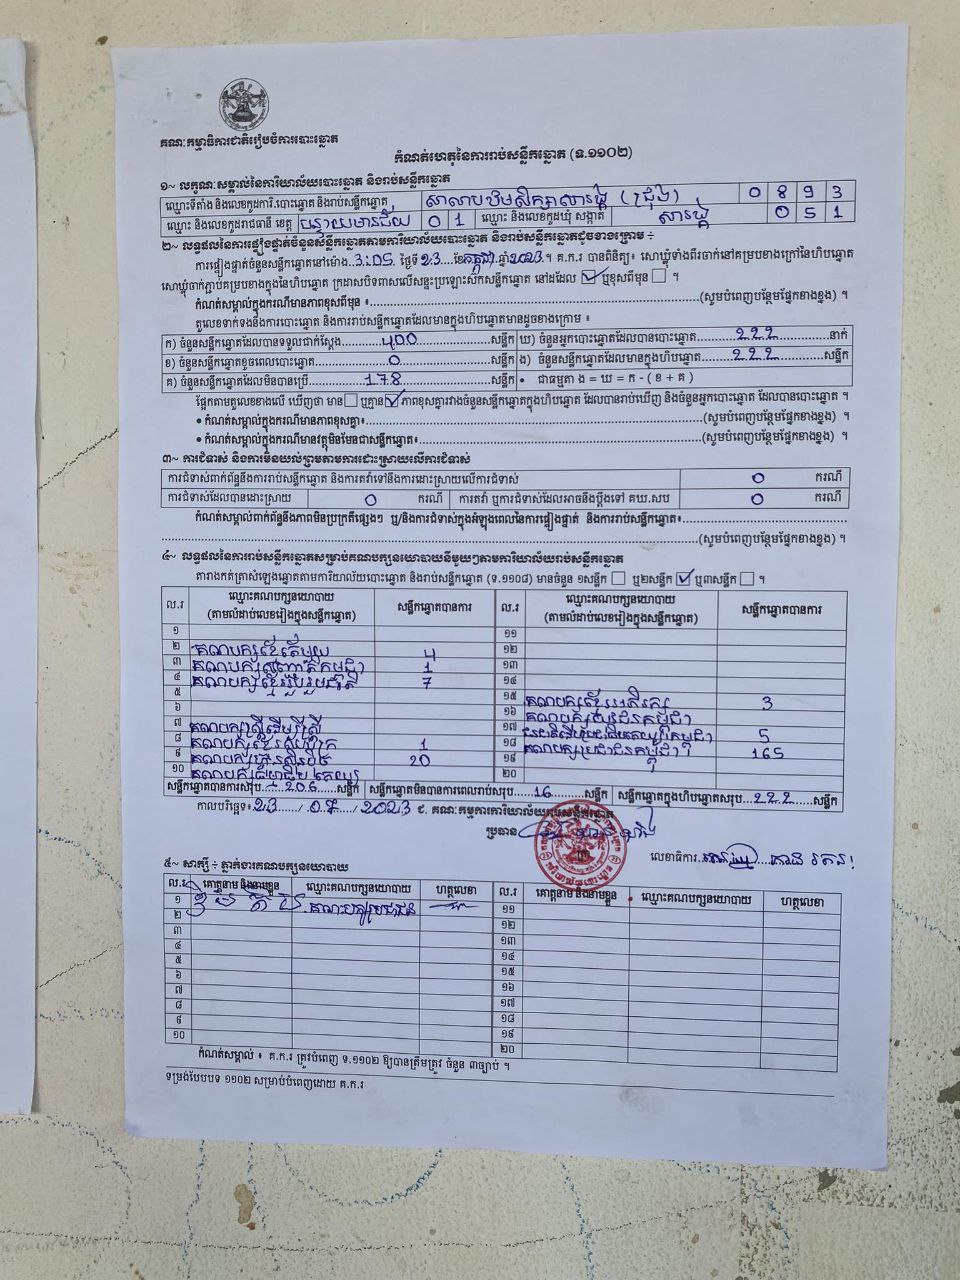 គណៈកម្មាធិការជាតិរៀបចំការបោះឆ្នោត
កំណត់ហេតុនៃការរាប់សន្លឹកឆ្នោត (ទ.១១០២)
១~ លក្ខណៈសម្គាល់នៃការិយាល័យបោះឆ្នោត និងរាប់សន្លឹកឆ្នោត
ឈ្មោះទីតាំង និងលេខកូដការិ.បោះឆ្នោត និងរាប់សន្លឹកឆ្នោត 0 8 9 3
ឈ្មោះ និងលេខកូដរាជធានី ខេត្ត បន្ទាយមានជ័យ 0 1 ឈ្មោះ និងលេខកូដឃុំ សង្កាត់ 0 5 1
២~ លទ្ធផលនៃការផ្ទៀងផ្ទាត់ចំនួនសន្លឹកឆ្នោតតាមការិយាល័យបោះឆ្នោត និងរាប់សន្លឹកឆ្នោតដូចខាងក្រោម ÷
ការផ្ទៀងផ្ទាត់ចំនួនសន្លឹកឆ្នោតនៅម៉ោង 3:05 ថ្ងៃទី 23 ខែ កក្កដា ឆ្នាំ 2023។ គ.ក.រ បានពិនិត្យ៖ សោឃ្លុំទាំងពីរចាក់នៅគម្របខាងក្រៅនៃហិបឆ្នោត
សោឃ្លុំចាក់ភ្ជាប់គម្របខាងក្នុងនៃហិបឆ្នោត ក្រដាសបិទពាសលើសន្ទះប្រឡោះស៊កសន្លឹកឆ្នោត នៅដដែល ☑ ឬខុសពីមុន ☐ ។
កំណត់សម្គាល់ក្នុងករណីមានភាពខុសពីមុន ៖ (សូមបំពេញបន្ថែមផ្នែកខាងខ្នង) ។
តួលេខទាក់ទងនឹងការបោះឆ្នោត និងការរាប់សន្លឹកឆ្នោតដែលមានក្នុងហិបឆ្នោតមានដូចខាងក្រោម ៖
ក) ចំនួនសន្លឹកឆ្នោតដែលបានទទួលជាក់ស្តែង 400 សន្លឹក ឃ) ចំនួនអ្នកបោះឆ្នោតដែលបានបោះឆ្នោត 222 នាក់
ខ) ចំនួនសន្លឹកឆ្នោតខូចពេលបោះឆ្នោត 0 សន្លឹក ង) ចំនួនសន្លឹកឆ្នោតដែលមានក្នុងហិបឆ្នោត 222 សន្លឹក
គ) ចំនួនសន្លឹកឆ្នោតដែលមិនបានប្រើ 178 សន្លឹក • ជាធម្មតា ង = ឃ = ក - ( ខ + គ )
ផ្អែកតាមតួលេខខាងលើ ឃើញថា មាន ☐ ឬគ្មាន ☑ ភាពខុសគ្នារវាងចំនួនសន្លឹកឆ្នោតក្នុងហិបឆ្នោត ដែលបានរាប់ឃើញ និងចំនួនអ្នកបោះឆ្នោត ដែលបានបោះឆ្នោត ។
• កំណត់សម្គាល់ក្នុងករណីមានភាពខុសគ្នា៖ (សូមបំពេញបន្ថែមផ្នែកខាងខ្នង) ។
• កំណត់សម្គាល់ក្នុងករណីមានវត្ថុមិនមែនជាសន្លឹកឆ្នោត៖ (សូមបំពេញបន្ថែមផ្នែកខាងខ្នង) ។
៣~ ការជំទាស់ និងការមិនយល់ព្រមតាមការដោះស្រាយលើការជំទាស់
ការជំទាស់ពាក់ព័ន្ធនឹងការរាប់សន្លឹកឆ្នោត និងការតវ៉ាទៅនឹងការដោះស្រាយលើការជំទាស់ 0 ករណី
ការជំទាស់ដែលបានដោះស្រាយ 0 ករណី ការតវ៉ា ឬការជំទាស់ដែលអាចនឹងប្តឹងទៅ គឃ.សប 0 ករណី
កំណត់សម្គាល់ពាក់ព័ន្ធនឹងភាពមិនប្រក្រតីផ្សេងៗ ឬ/និងការជំទាស់ក្នុងអំឡុងពេលនៃការផ្ទៀងផ្ទាត់ និងការរាប់សន្លឹកឆ្នោត៖
(សូមបំពេញបន្ថែមផ្នែកខាងខ្នង) ។
៤~ លទ្ធផលនៃការរាប់សន្លឹកឆ្នោតសម្រាប់គណបក្សនយោបាយនីមួយៗតាមការិយាល័យរាប់សន្លឹកឆ្នោត
តារាងកត់ត្រាសំឡេងឆ្នោតតាមការិយាល័យបោះឆ្នោត និងរាប់សន្លឹកឆ្នោត (ទ.១១០៨) មានចំនួន ១សន្លឹក ☐ ឬ២សន្លឹក ☑ ឬ៣សន្លឹក ☐ ។
ល.រ ឈ្មោះគណបក្សនយោបាយ (តាមលំដាប់លេខរៀងក្នុងសន្លឹកឆ្នោត) សន្លឹកឆ្នោតបានការ ល.រ ឈ្មោះគណបក្សនយោបាយ (តាមលំដាប់លេខរៀងក្នុងសន្លឹកឆ្នោត) សន្លឹកឆ្នោតបានការ
១ ១១
២ គណបក្សខ្មែរតែមួយ 4 ១២
៣ 1 ១៣
៤ គណបក្សខ្មែររួបរួមជាតិ 7 ១៤
៥ ១៥ 3
៦ ១៦
៧ គណបក្សស្ត្រីដើម្បីស្ត្រី ១៧ 5
៨ 1 ១៨ គណបក្សប្រជាជនកម្ពុជា 165
៩ គណបក្សហ៊្វុនស៊ិនប៉ិច 20 ១៩
១០ គណបក្សធម្មាធិបតេយ្យ ២០
សន្លឹកឆ្នោតបានការសរុប 206 សន្លឹក សន្លឹកឆ្នោតមិនបានការពេលរាប់សរុប 16 សន្លឹក សន្លឹកឆ្នោតក្នុងហិបឆ្នោតសរុប 222 សន្លឹក
កាលបរិច្ឆេទ៖ 23 / 07 / 2023 ជ. គណៈកម្មការការិយាល័យរាប់សន្លឹកឆ្នោត
ប្រធាន
លេខាធិការ
៥~ សាក្សី ÷ ភ្នាក់ងារគណបក្សនយោបាយ
ល.រ គោត្តនាម និងនាមខ្លួន ឈ្មោះគណបក្សនយោបាយ ហត្ថលេខា ល.រ គោត្តនាម និងនាមខ្លួន ឈ្មោះគណបក្សនយោបាយ ហត្ថលេខា
១ គណបក្សប្រជាជន ១១
២ ១២
៣ ១៣
៤ ១៤
៥ ១៥
៦ ១៦
៧ ១៧
៨ ១៨
៩ ១៩
១០ ២០
កំណត់សម្គាល់ ៖ គ.ក.រ ត្រូវបំពេញ ទ.១១០២ ឱ្យបានត្រឹមត្រូវ ចំនួន ៣ច្បាប់ ។
ទម្រង់បែបបទ ១១០២ សម្រាប់បំពេញដោយ គ.ក.រ